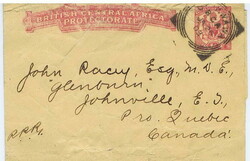 BRITISH CENTRAL AFRICA
PROTECTORATE
John Racey, Esq, M.D.E.,
"Glenburn",
Johnville, E.T.,
Pro. Quebec
Canada.